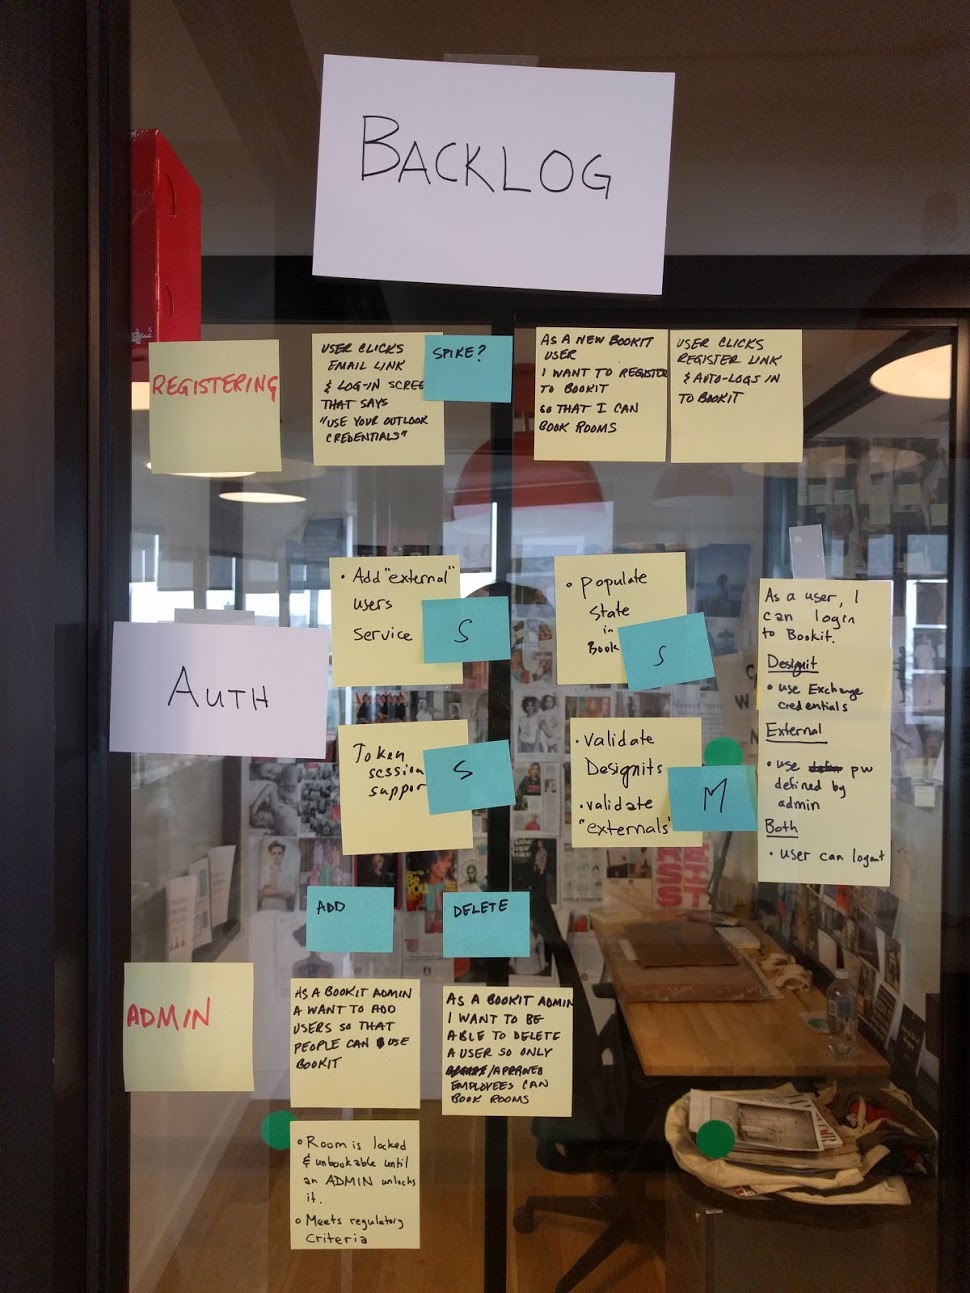 BACKLOG
REGISTERING
USER CLICKS
EMAIL LINK
& LOG-IN SCREE
THAT SAYS
"USE YOUR OUTLOOK
CREDENTIALS"
SPIKE?
AS A NEW BOOKIT
USER
I WANT TO REGISTER
TO BOOKIT
SO THAT I CAN
BOOK ROOMS
USER CLICKS
REGISTER LINK
& AUTO-LOGS IN
TO BOOKIT
AUTH
• Add "external"
users
service
S
• populate
state
in
Book
S
Token
session
suppor
S
• validate
Designits
• validate
"externals"
M
As a user, I
can login
to Bookit.
Designit
• use Exchange
credentials
External
• use pw
defined by
admin
Both
• user can logout
ADD
DELETE
ADMIN
AS A BOOKIT ADMIN
A WANT TO ADD
USERS SO THAT
PEOPLE CAN USE
BOOKIT
AS A BOOKIT ADMIN
I WANT TO BE
ABLE TO DELETE
A USER SO ONLY
/APPROVED
EMPLOYEES CAN
BOOK ROOMS
• Room is locked
& unbookable until
an ADMIN unlocks
it.
• Meets regulatory
criteria